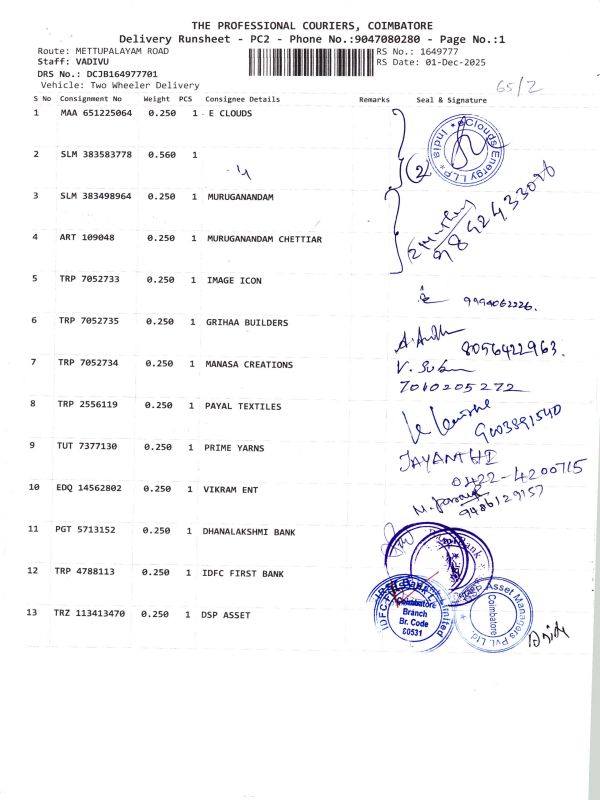 THE PROFESSIONAL COURIERS, COIMBATORE
Delivery Runsheet - PC2 - Phone No.:9047080280 - Page No.:1
Route: METTUPALAYAM ROAD RS No.: 1649777
Staff: VADIVU RS Date: 01-Dec-2025
DRS No.: DCJB164977701
Vehicle: Two Wheeler Delivery 65/2
S No Consignment No Weight PCS Consignee Details Remarks Seal & Signature
1 MAA 651225064 0.250 1 E CLOUDS
eClouds Energy LLP * India *
2 SLM 383583778 0.560 1
(2)
3 SLM 383498964 0.250 1 MURUGANANDAM
9892433086
4 ART 109048 0.250 1 MURUGANANDAM CHETTIAR
5 TRP 7052733 0.250 1 IMAGE ICON
9994062226.
6 TRP 7052735 0.250 1 GRIHAA BUILDERS
8056422963.
7 TRP 7052734 0.250 1 MANASA CREATIONS
7010205272
8 TRP 2556119 0.250 1 PAYAL TEXTILES
9003891540
9 TUT 7377130 0.250 1 PRIME YARNS
JAYANTHI
0422-4200715
10 EDQ 14562802 0.250 1 VIKRAM ENT
9486129157
11 PGT 5713152 0.250 1 DHANALAKSHMI BANK
Bank
12 TRP 4788113 0.250 1 IDFC FIRST BANK
IDFC First Bank Limited
Coimbatore
Branch
Br. Code
80531
13 TRZ 113413470 0.250 1 DSP ASSET
DSP Asset Managers Pvt. Ltd.
Coimbatore